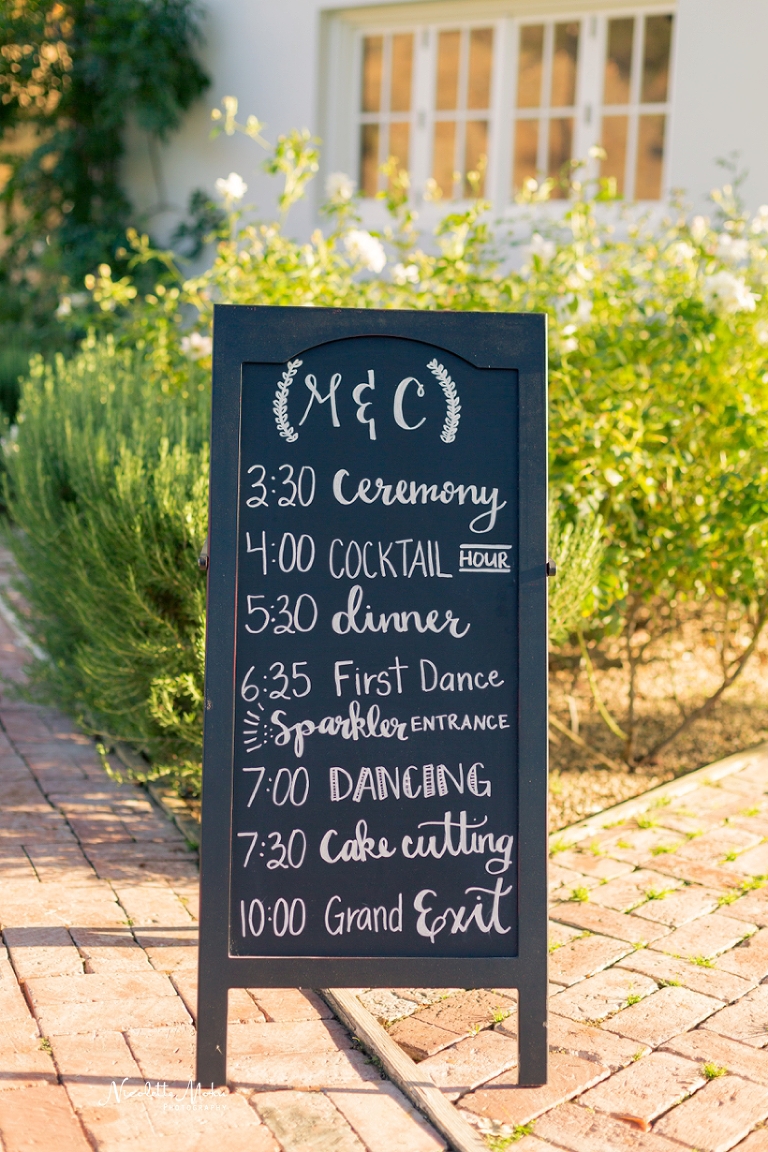 M & C
3:30 Ceremony
4:00 COCKTAIL HOUR
5:30 dinner
6:35 First Dance
Sparkler ENTRANCE
7:00 DANCING
7:30 Cake cutting
10:00 Grand Exit